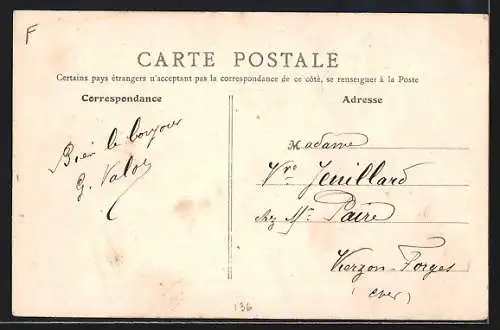 F
CARTE POSTALE
Certains pays étrangers n'acceptant pas la correspondance de ce côté, se renseigner à la Poste
Correspondance
Adresse
Bien le bonjour
G. Valois
Madame
Vve Jeuillard
chez Mr Paire
Vierzon-Forges
(Cher)
136